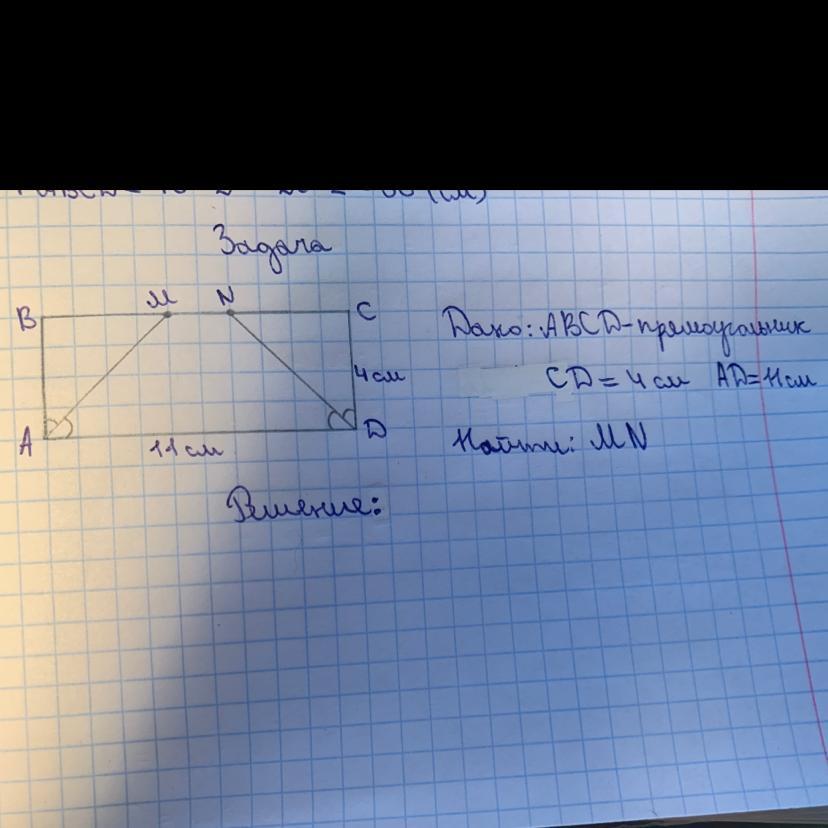 Задача
B M N C
Дано: ABCD-прямоугольник
4 см
CD = 4 см AD=11 см
A D
11 см
Найти: MN
Решение: